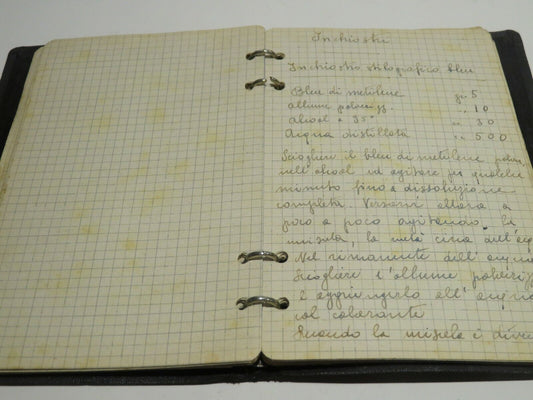 Inchiostri
Inchiostro stilografico bleu
Bleu di metilene gr. 5
allume polverizz. " 10
Alcool a 35° " 30
Acqua distillata " 500
Sciogliere il bleu di metilene
nell'alcool ed agitare per qualche
minuto fino a dissoluzione
completa. Versarvi allora a
poco a poco agitando la
miscela, la metà circa dell'acq
Nel rimanente dell'acqua
sciogliere l'allume polveriz
e aggiungerlo all'acqua
col colorante
Quando la miscela è dive